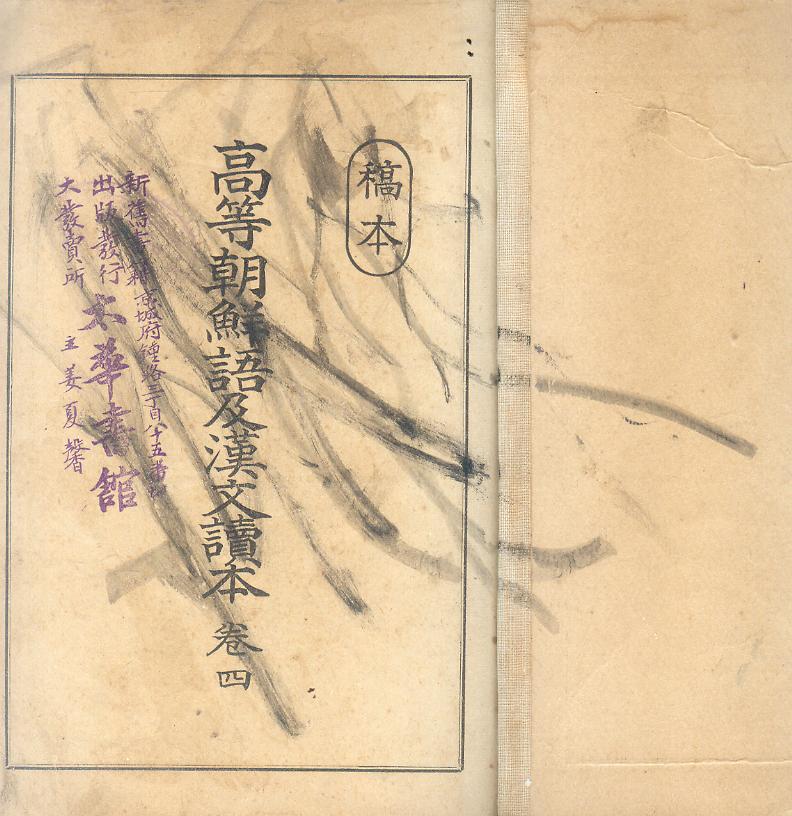 稿本
高等朝鮮語及漢文讀本 卷四
新舊書籍 京城府鍾路三丁目八十五番地
出版發行 太華書館
大發賣所 主 姜夏馨